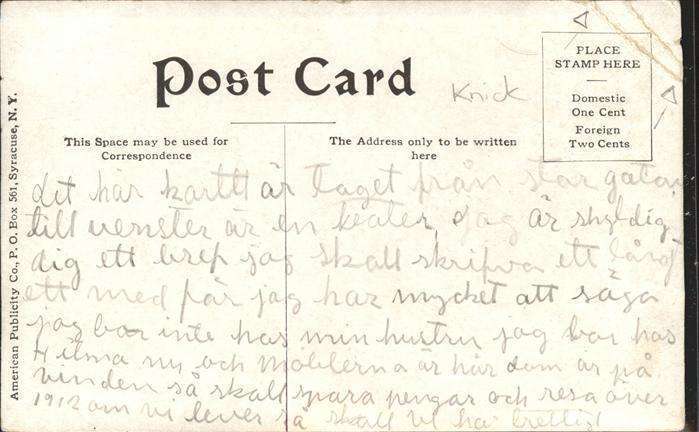 Post Card
Knick
PLACE
STAMP HERE
Domestic
One Cent
Foreign
Two Cents
This Space may be used for
Correspondence
The Address only to be written
here
American Publicity Co., P. O. Box 561, Syracuse, N. Y.
det här kartt är taget från stor gatan
till venster är en teater, jag är skyldig
dig ett bref jag skall skrifva ett långt
ett med får jag har mycket att säga
jag bor inte hos min hustru jag bor hos
Hilma nu och möblerna är här dom är på
vinden så skall spara pengar och resa över
1912 om vi lever så skall vi ha trettigt